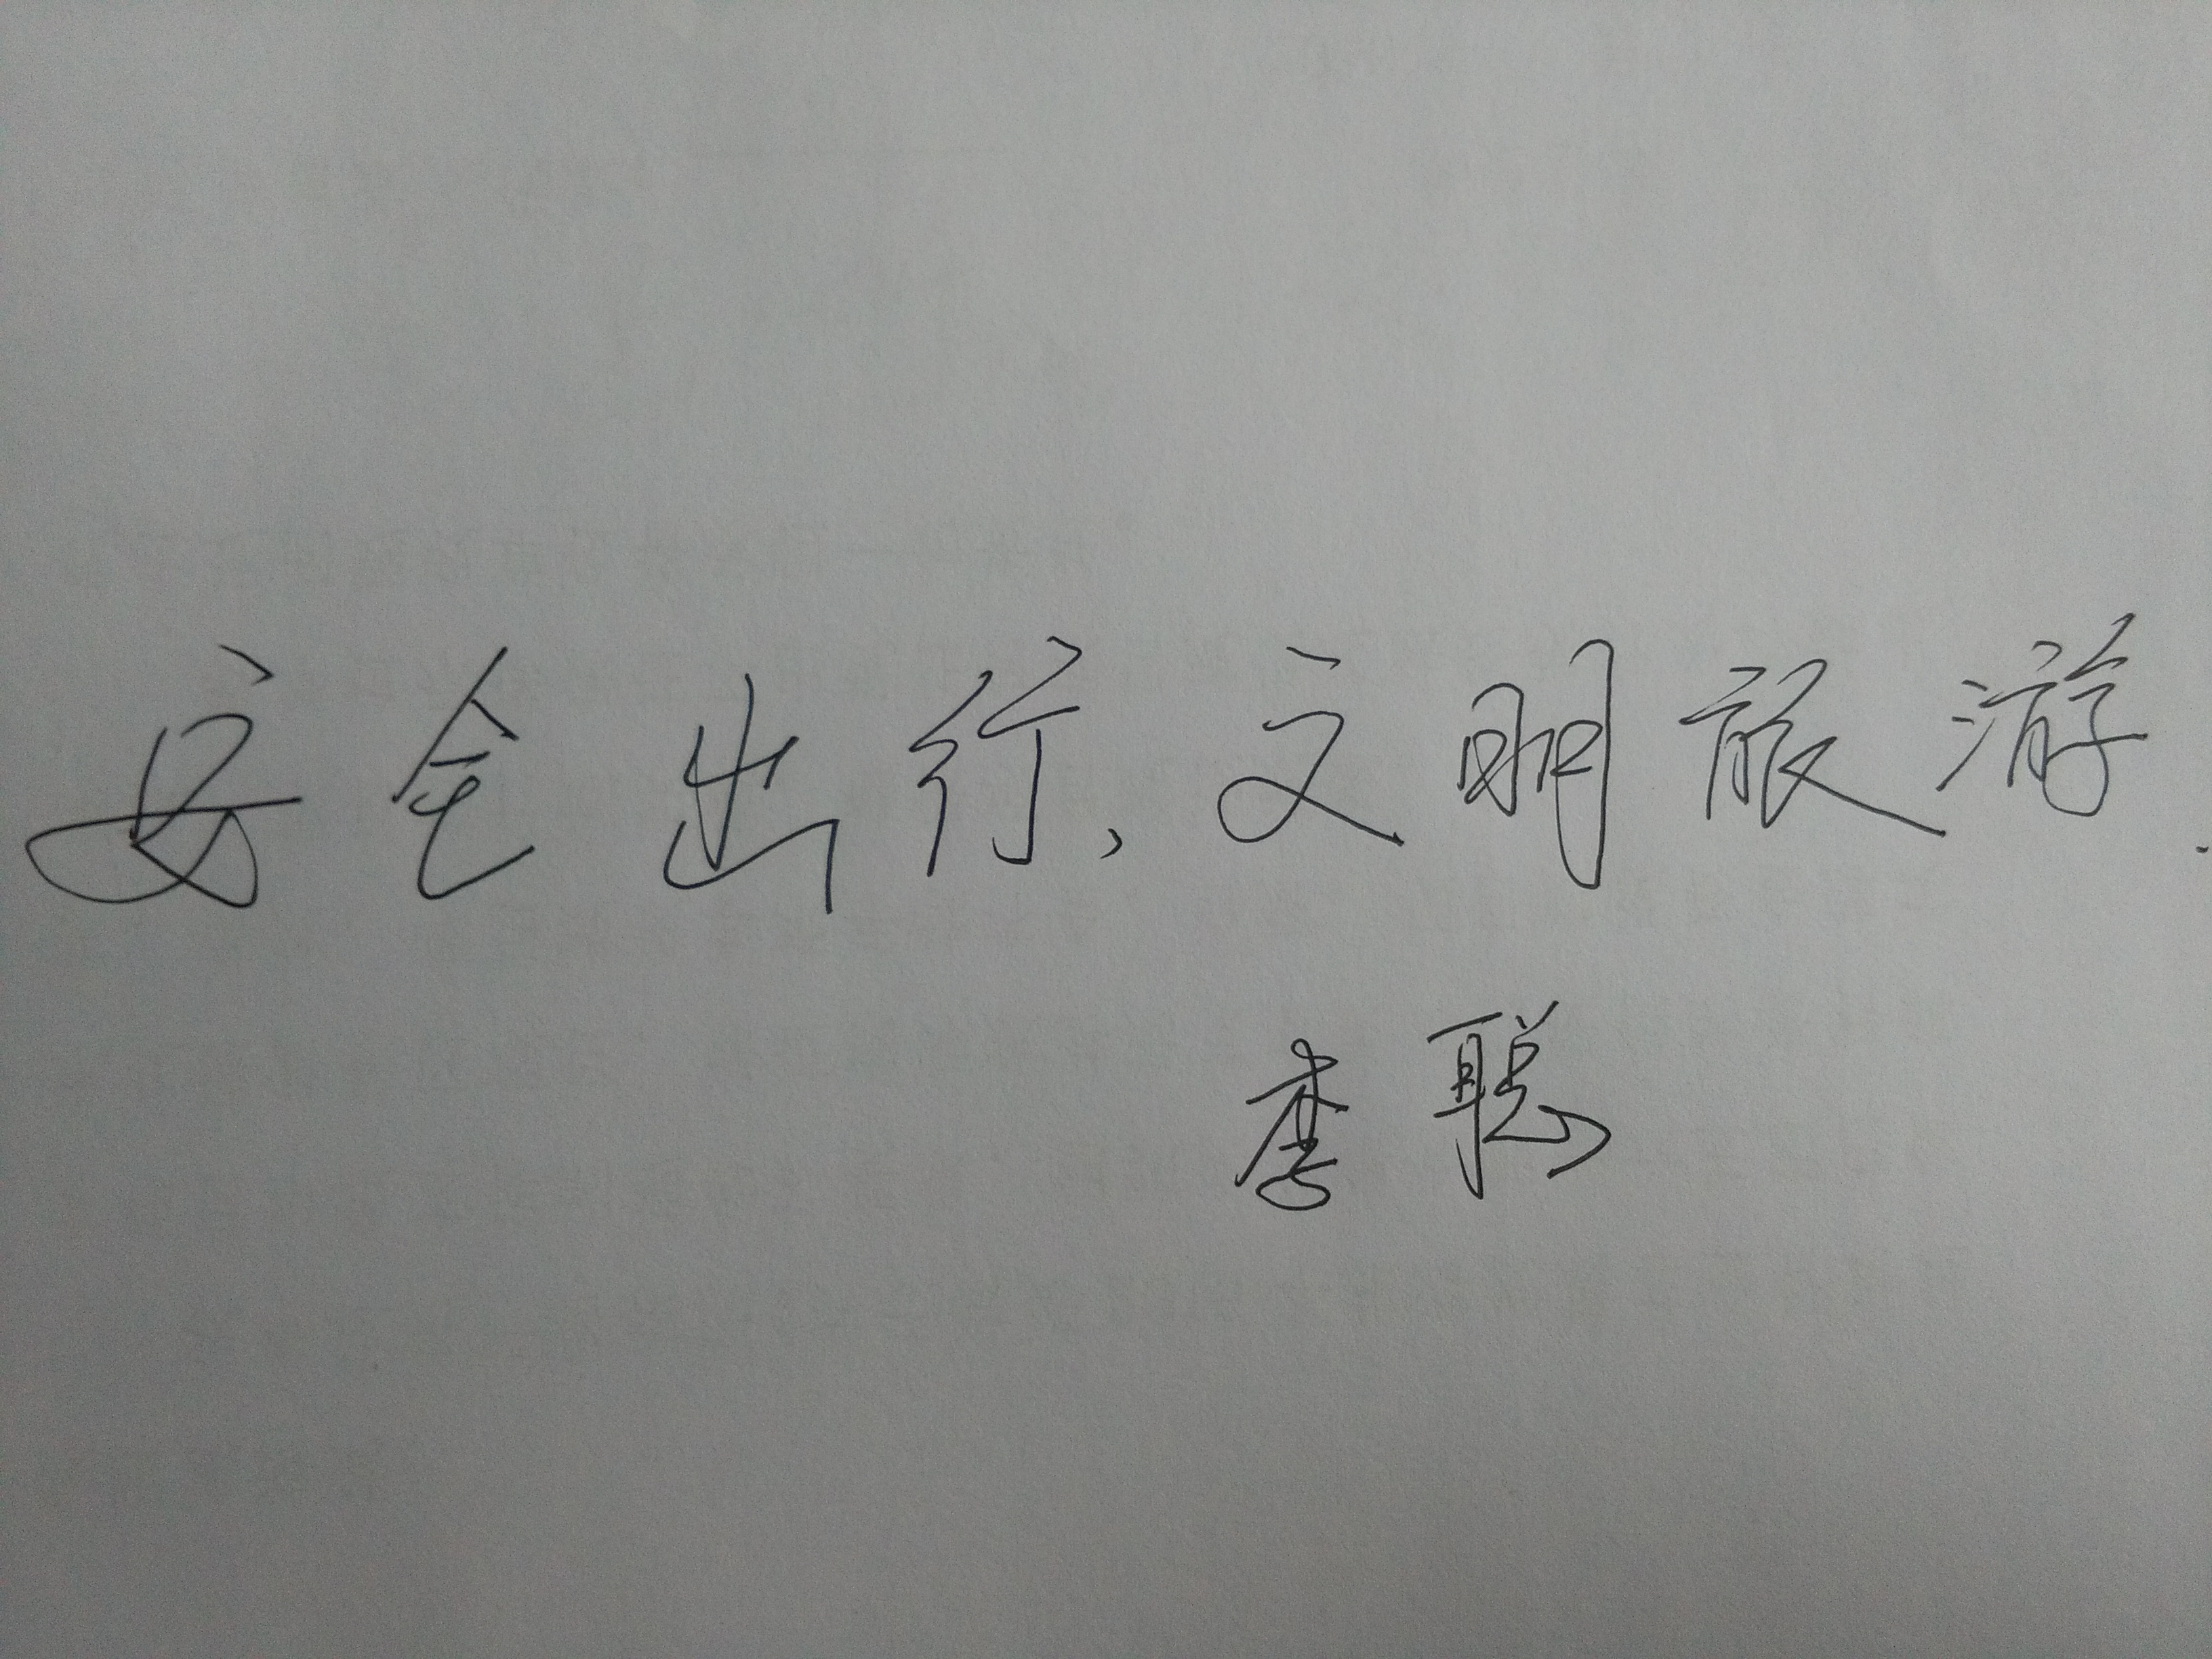 安全出行,文明旅游.
李聪